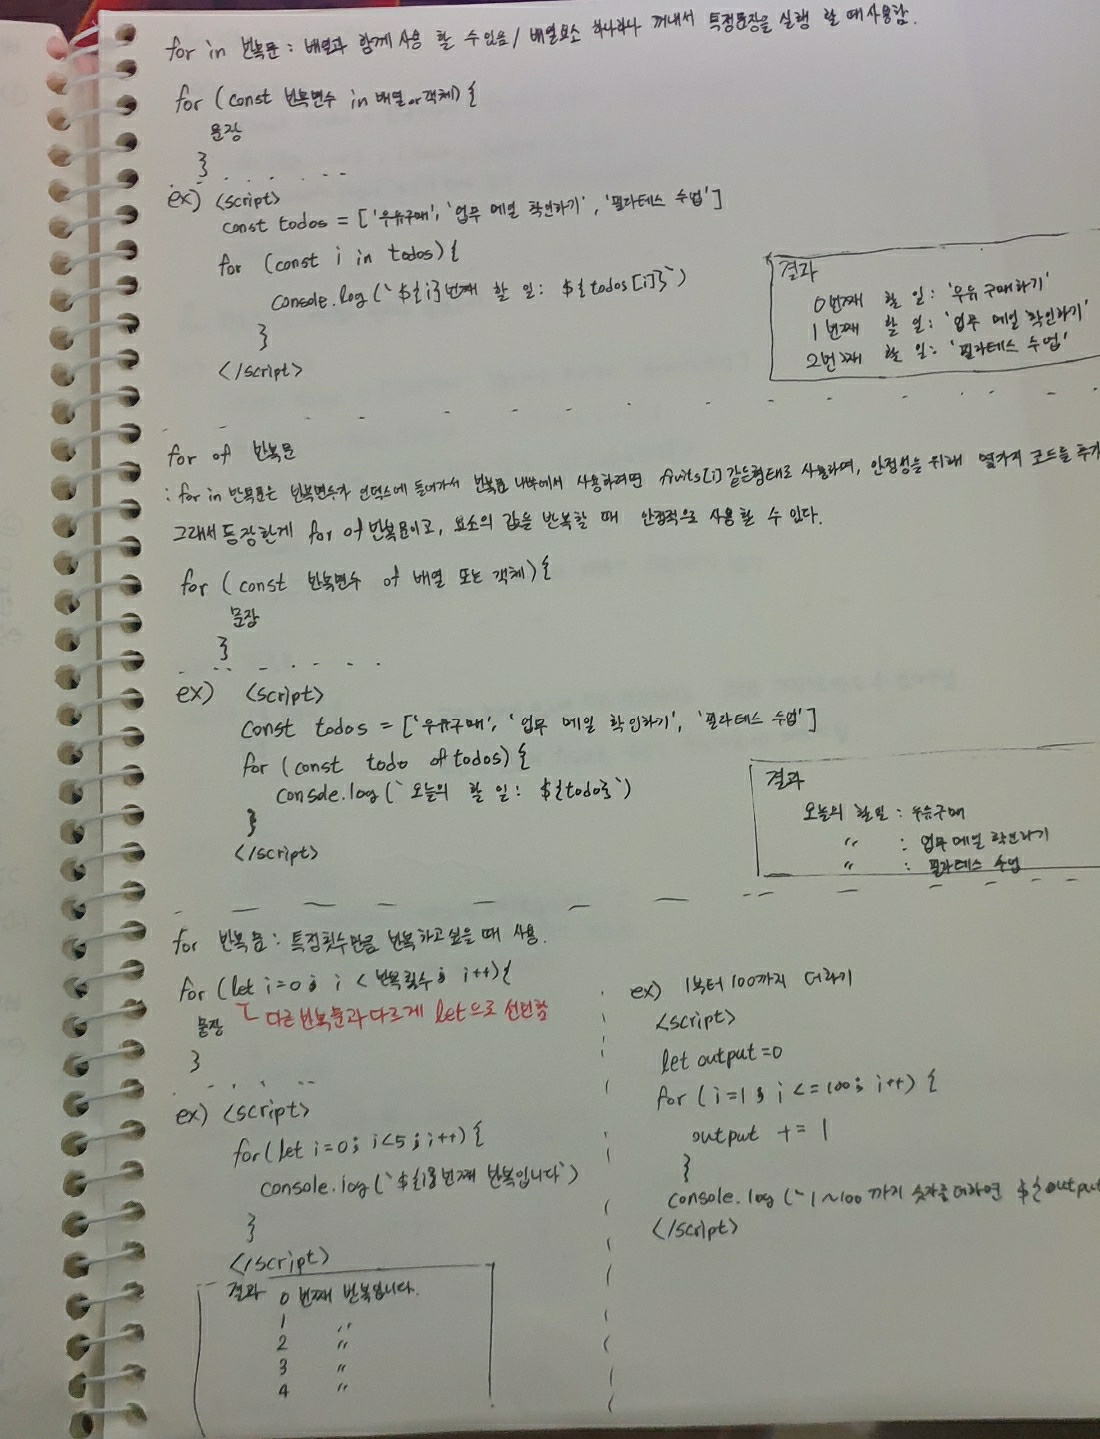 for in 반복문 : 배열과 함께 사용 할 수 있음 / 배열요소 하나하나 꺼내서 특정문장을 실행 할 때 사용함.
for (const 반복변수 in 배열or객체) {
문장
}
ex) <script>
const todos = ['우유구매', '업무 메일 확인하기', '필라테스 수업']
for (const i in todos) {
console.log(`${i}번째 할 일: ${todos[i]}`)
}
</script>
결과
0번째 할 일: '우유 구매하기'
1번째 할 일: '업무 메일 확인하기'
2번째 할 일: '필라테스 수업'
for of 반복문
: for in 반복문은 반복변수가 인덱스에 들어가서 반복문 내부에서 사용하려면 fruits[i] 같은형태로 사용하며, 안정성을 위해 몇가지 코드를 추가
그래서 등장한게 for of 반복문이고, 요소의 값을 반복할 때 안정적으로 사용할 수 있다.
for ( const 반복변수 of 배열 또는 객체) {
문장
}
ex) <script>
const todos = ['우유구매', '업무 메일 확인하기', '필라테스 수업']
for (const todo of todos) {
console.log(`오늘의 할 일: ${todo}`)
}
</script>
결과
오늘의 할일 : 우유구매
〃 : 업무 메일 확인하기
〃 : 필라테스 수업
for 반복문 : 특정횟수만큼 반복하고싶을 때 사용.
for (let i=0; i < 반복횟수; i++) {
다른 반복문과 다르게 let으로 선언함
문장
}
ex) <script>
for(let i=0; i<5; i++) {
console.log(`${i}번째 반복입니다`)
}
</script>
결과 0 번째 반복입니다.
1 〃
2 〃
3 〃
4 〃
ex) 1부터 100까지 더하기
<script>
let output=0
for (i=1; i<=100; i++) {
output += 1
}
console.log(`1~100까지 숫자를 더하면 ${output
</script>